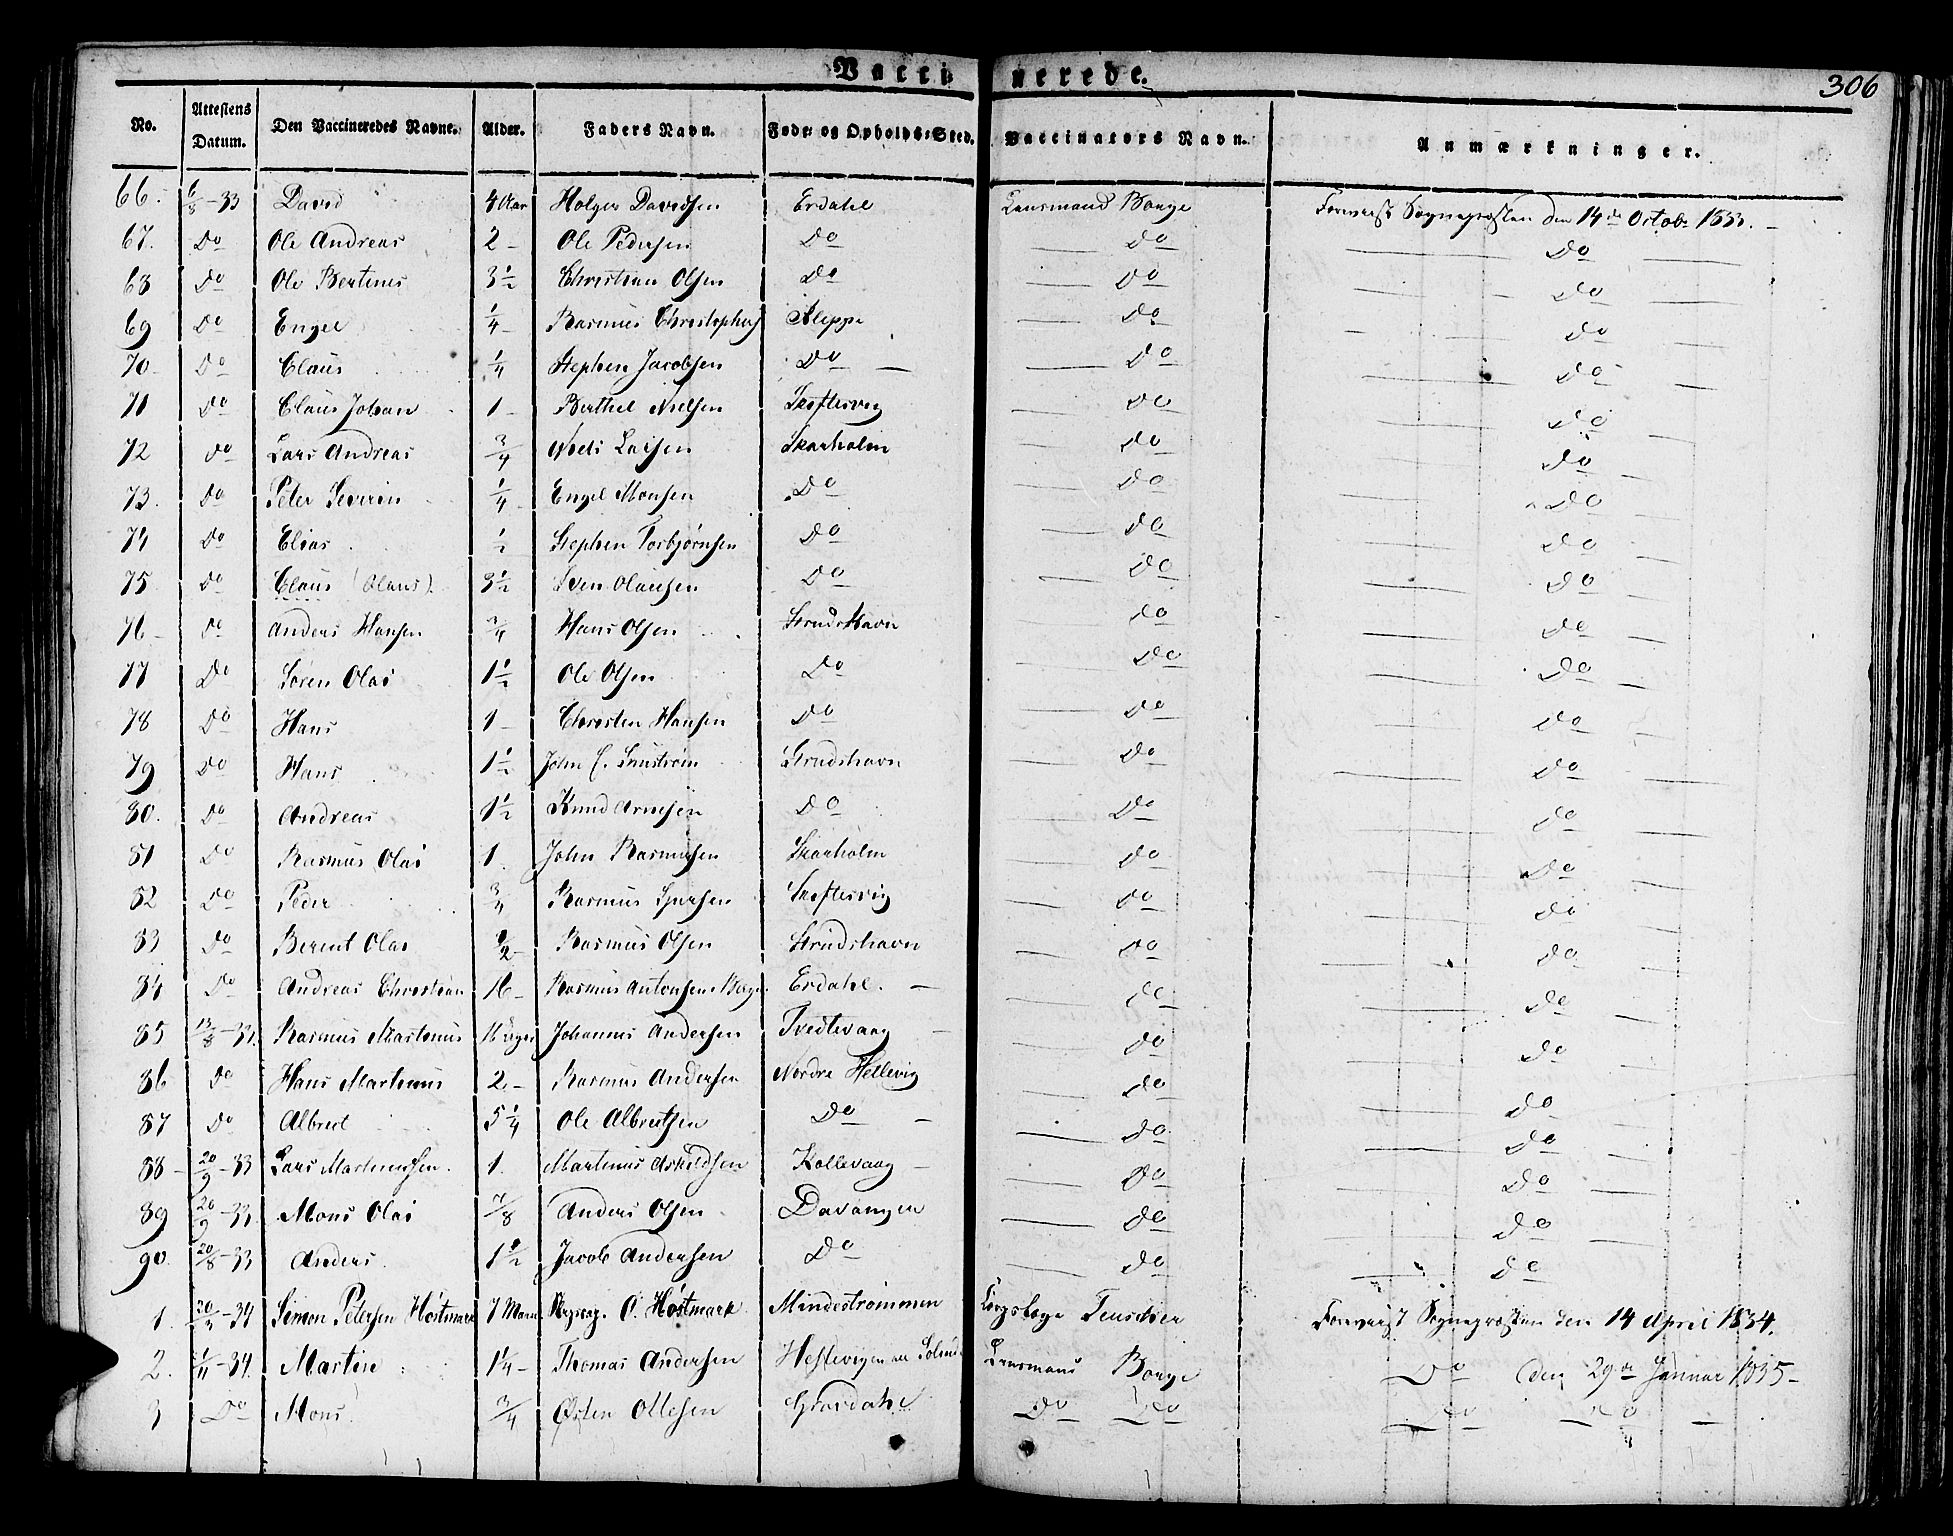 Vaccinerede.
306
No. Attestens Datum. Den Vaccineredes Navne. Alder. Faders Navn. Føde- og Opholds-Sted. Vaccinators Navn. Anmærkninger.
66. 6/8-33 David 4 Aar Holger Davidsen Erdahl Lensmand Borge Foreviist Sognepræsten den 14de Octob. 1833.
67. Do Ole Andreas 2 - Ole Pedersen Do Do Do
68 Do Ole Bertinus 3 1/2 Christian Olsen Do Do Do
69 Do Engel 1/4 - Rasmus Christophers Kleppe Do Do
70 Do Claus 1/4 Stephen Jacobsen Do Do Do
71 Do Claus Johan 1 - Berthel Nielsen Skiftesvig Do Do
72 Do Lars Andreas 3/4 Niels Larsen Skarholm Do Do
73. Do Peter Severin 1/4 - Engel Monsen Do Do Do
74 Do Elias 1/2 Stephen Torbjørnsen Do Do Do
75 Do Claus (Olaus) 3 1/2 Sven Olausen Do Do Do
76 - Do Anders Hansen 3/4 Hans Olsen Strudshavn Do Do
77 Do Søren Olai 1 1/2 Ole Olsen Do Do Do
78 Do Hans 1 - Christen Hansen Do Do Do
79 Do Hans 1 1/2 John C. Strudshavn Do Do
80. Do Andreas 1 1/2 Knud Arnesen Do Do Do
81 Do Rasmus Olai 1. John Rasmussen Skarholm Do Do
82 Do Peder 3/4 Rasmus Skiftesvig Do Do
83 Do Berent Olai 1/2 - Rasmus Olsen Strudshavn Do Do
84 Do Andreas Christian 16 - Rasmus Antonsen Erdahl. Do Do
85 13/8-33. Rasmus Martinus 16 Uger Johannes Andersen Tvedtevaag Do Do
86 Do Hans Martinus 2 - Rasmus Andersen Nordre Hellevig Do Do
87 Do Albrect 5 1/4 Ole Albrectsen Do Do Do
88 - 20/9-33 Lars Martinussen. 1. Martinus Askeldsen Kollevaag Do Do
89 20/9-33. Mons Olai 7/8 Anders Olsen Davangen Do Do
90. 20/8-33 Anders. 1 1/2 Jacob Andersen Do Do Do
1. 20/3-34 Simon Petersen Høstmark 7 Maan P. Høstmark Mindestrømmen Corpslæge Teuscher Foreviist Sognepræsten den 14 April 1834.
2. 1/11-34. Martin 1 1/4 - Thomas Andersen Lensmand Borge Do den 29de Januar 1835 -
3 Do Mons. 3/4 Østen Ottesen Do Do Do Do